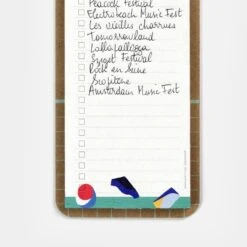 Peacock Festival
Electrobeach Music Fest
Les vieilles charrues
Tomorrowland
Lollapallooza
Sziget Festival
Rock en Seine
Scopitone
Amsterdam Music Fest